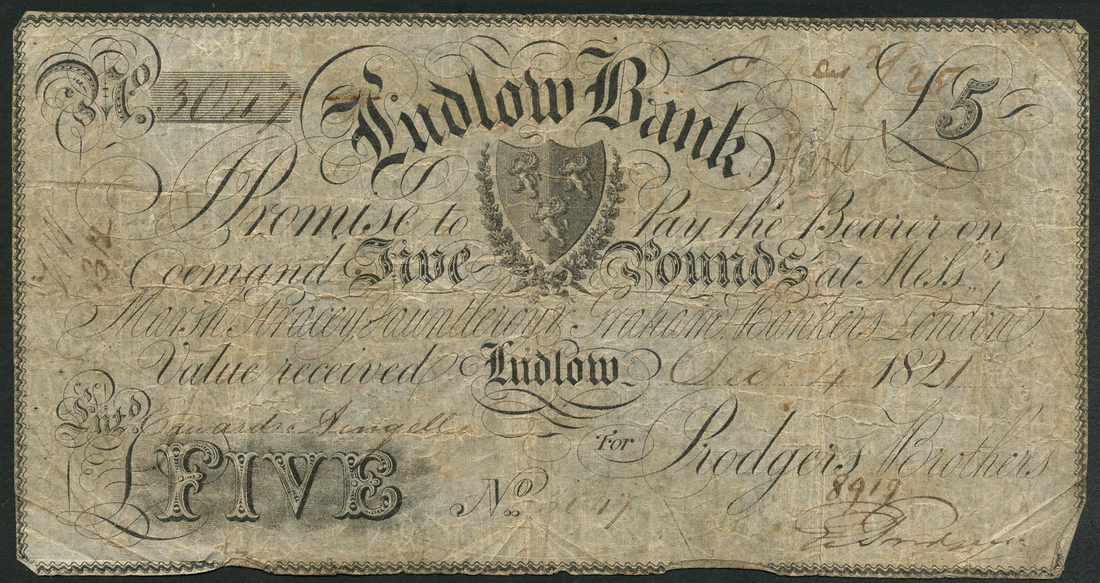 No. 3047
Ludlow Bank
£5
I Promise to Pay the Bearer on
Demand Five Pounds at Messrs
Marsh, Stracey, Fauntleroy & Graham, Bankers, London,
Value received Ludlow Decr 4 1821
Entd.
For Rodgers Brothers
£FIVE
No. 3047
8919